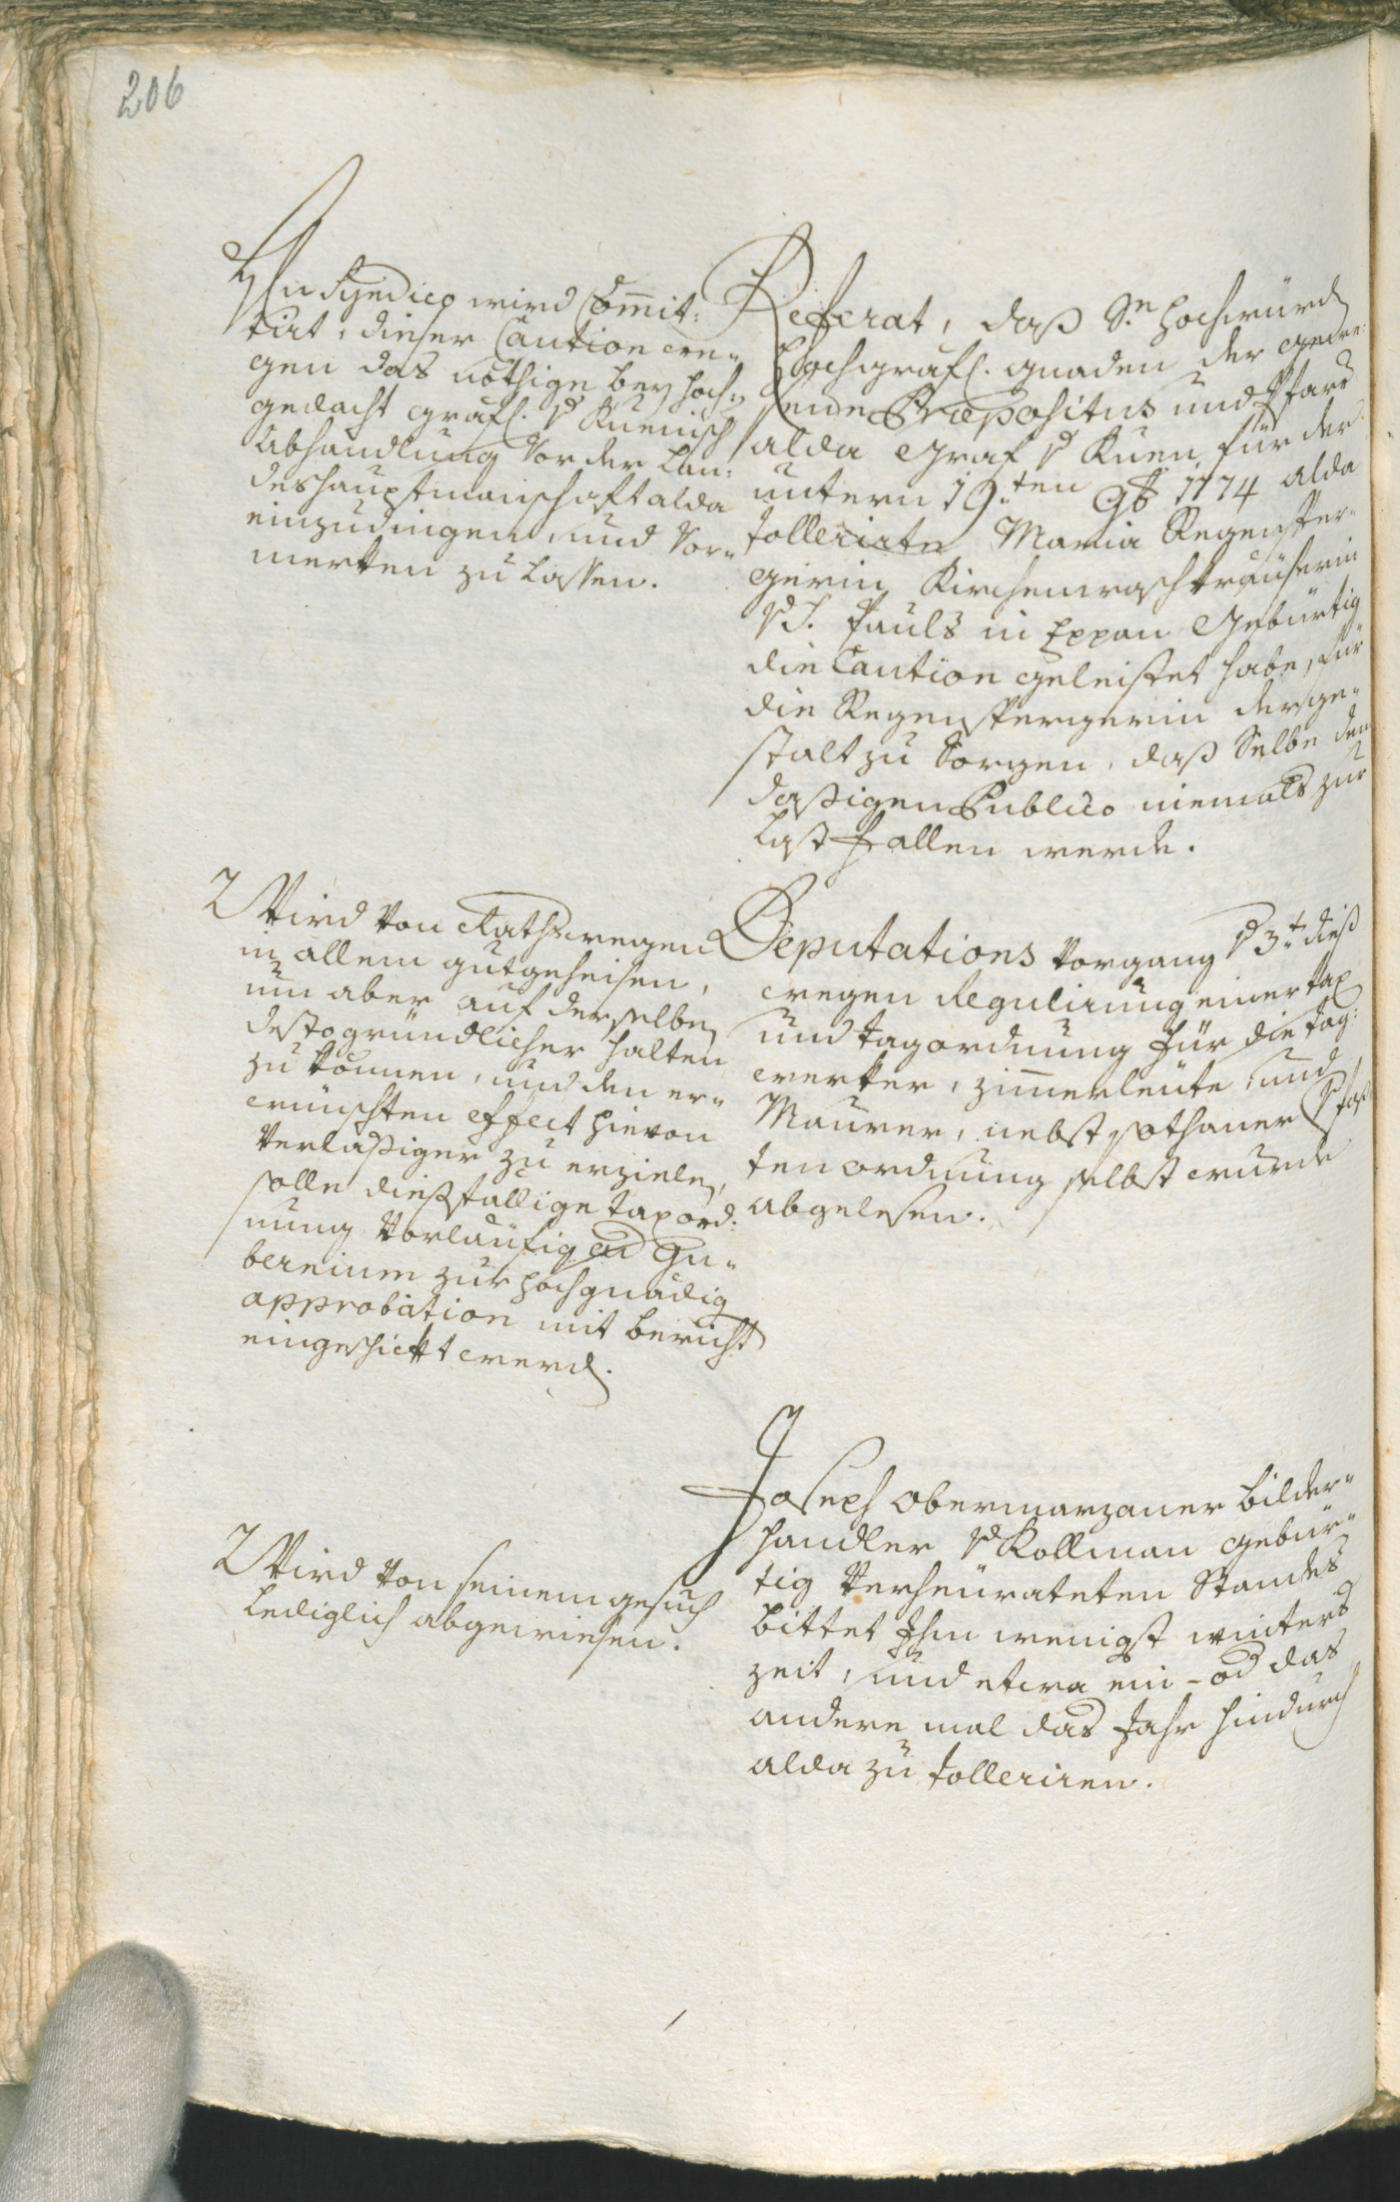 206
Hn Syndico wird Com̅it:
tirt, dieser Caution we¬
gen das nöthige bey hoch¬
gedacht gräfl. v Kuenisch
Abhandlung vor der Lan:
deshauptmanschaft alda
einzudingen, und vor¬
merken zu lassen.
Referat, daß Sn. hochwürd
hochgräfl. gnaden der gewe¬
sene Præpositus und Pfarr
alda Graf v Kuen für der
untern 19.ten 9b 1774 alda
tollerirte Maria Regensper¬
gerin Kirchenwaschkäuferin
v S. Pauls in Eppan gebürtig
die Caution geleistet habe, für
die Regenspergerin derge¬
stalt zu sorgen, daß selbe dem
dasigen Publico niemals zur
Last fallen werde.
Wird von Rathswegen
in allem gutgeheisen,
um aber auf derselbe
desto gründlicher halten
zu können, und den er¬
wünschten effect hievon
verlaßiger zu erzielen,
solle diesfällige taxord:
nung vorläufig ad Gu¬
bernium zur hochgnädig
approbation mit bericht
eingeschickt werd.
Deputations vorgang v 3.t dieß
wegen Regulierung einer tax
und tagordnung für die tag:
werker, zim̅erleute, und
Maurer, nebst sothaner
tenordnung selbst wurde
abgelesen.
Wird von seinem gesuch
lediglich abgewiesen.
Joseph obermarzaner bilder¬
handler v Kollman gebür¬
tig verheürateten Standes
bittet Ihm wenigst winters
zeit, und etwa ein- od das
andere mal das Jahr hindurch
alda zu tolleriren.